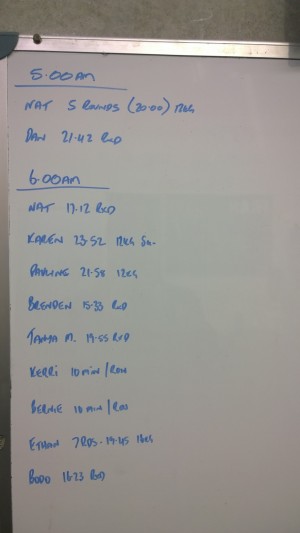 5.00AM
NAT 5 ROUNDS (20.00) 12KG
DAN 21.42 RXD
6.00AM
NAT 17.12 RXD
KAREN 23.52 12KG
PAULINE 21.58 12KG
BRENDEN 15.33 RXD
TANYA M. 19.55 RXD
KERRI 10 MIN / ROW
BERNIE 10 MIN / ROW
ETHAN 7 RDS - 19.45 16KG
BODO 16.23 RXD